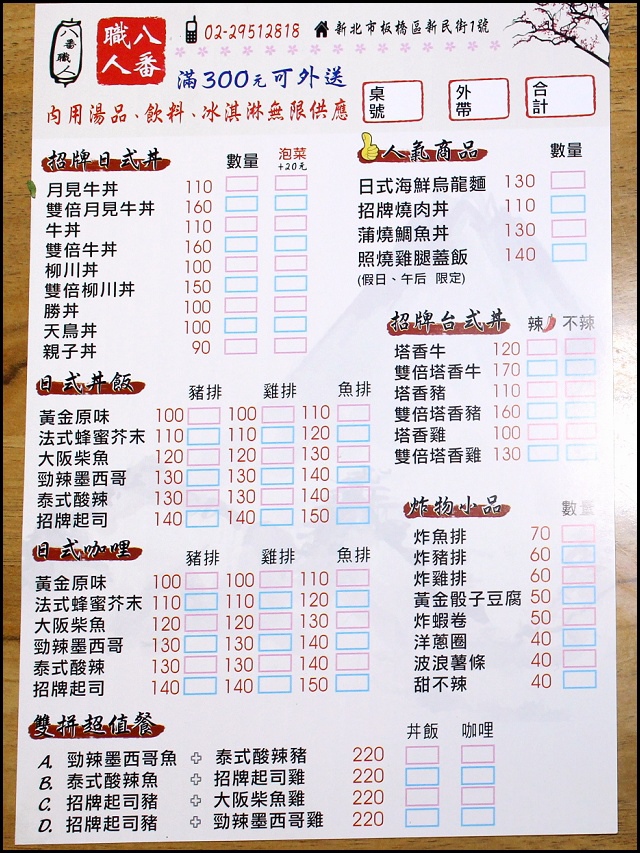 八番職人
八番
職人
02-29512818 新北市板橋區新民街1號
滿300元可外送
內用湯品、飲料、冰淇淋無限供應
桌號
外帶
合計
招牌日式丼 數量 泡菜+20元
月見牛丼 110
雙倍月見牛丼 160
牛丼 110
雙倍牛丼 160
柳川丼 100
雙倍柳川丼 150
勝丼 100
天鳥丼 100
親子丼 90
人氣商品 數量
日式海鮮烏龍麵 130
招牌燒肉丼 110
蒲燒鯛魚丼 130
照燒雞腿蓋飯 140
(假日、午后 限定)
招牌台式丼 辣 不辣
塔香牛 120
雙倍塔香牛 170
塔香豬 110
雙倍塔香豬 160
塔香雞 100
雙倍塔香雞 130
日式丼飯 豬排 雞排 魚排
黃金原味 100 100 110
法式蜂蜜芥末 110 110 120
大阪柴魚 120 120 130
勁辣墨西哥 130 130 140
泰式酸辣 130 130 140
招牌起司 140 140 150
炸物小品 數量
炸魚排 70
炸豬排 60
炸雞排 60
黃金骰子豆腐 50
炸蝦卷 50
洋蔥圈 40
波浪薯條 40
甜不辣 40
日式咖哩 豬排 雞排 魚排
黃金原味 100 100 110
法式蜂蜜芥末 110 110 120
大阪柴魚 120 120 130
勁辣墨西哥 130 130 140
泰式酸辣 130 130 140
招牌起司 140 140 150
雙拼超值餐 丼飯 咖哩
A. 勁辣墨西哥魚 + 泰式酸辣豬 220
B. 泰式酸辣魚 + 招牌起司雞 220
C. 招牌起司豬 + 大阪柴魚雞 220
D. 招牌起司豬 + 勁辣墨西哥雞 220